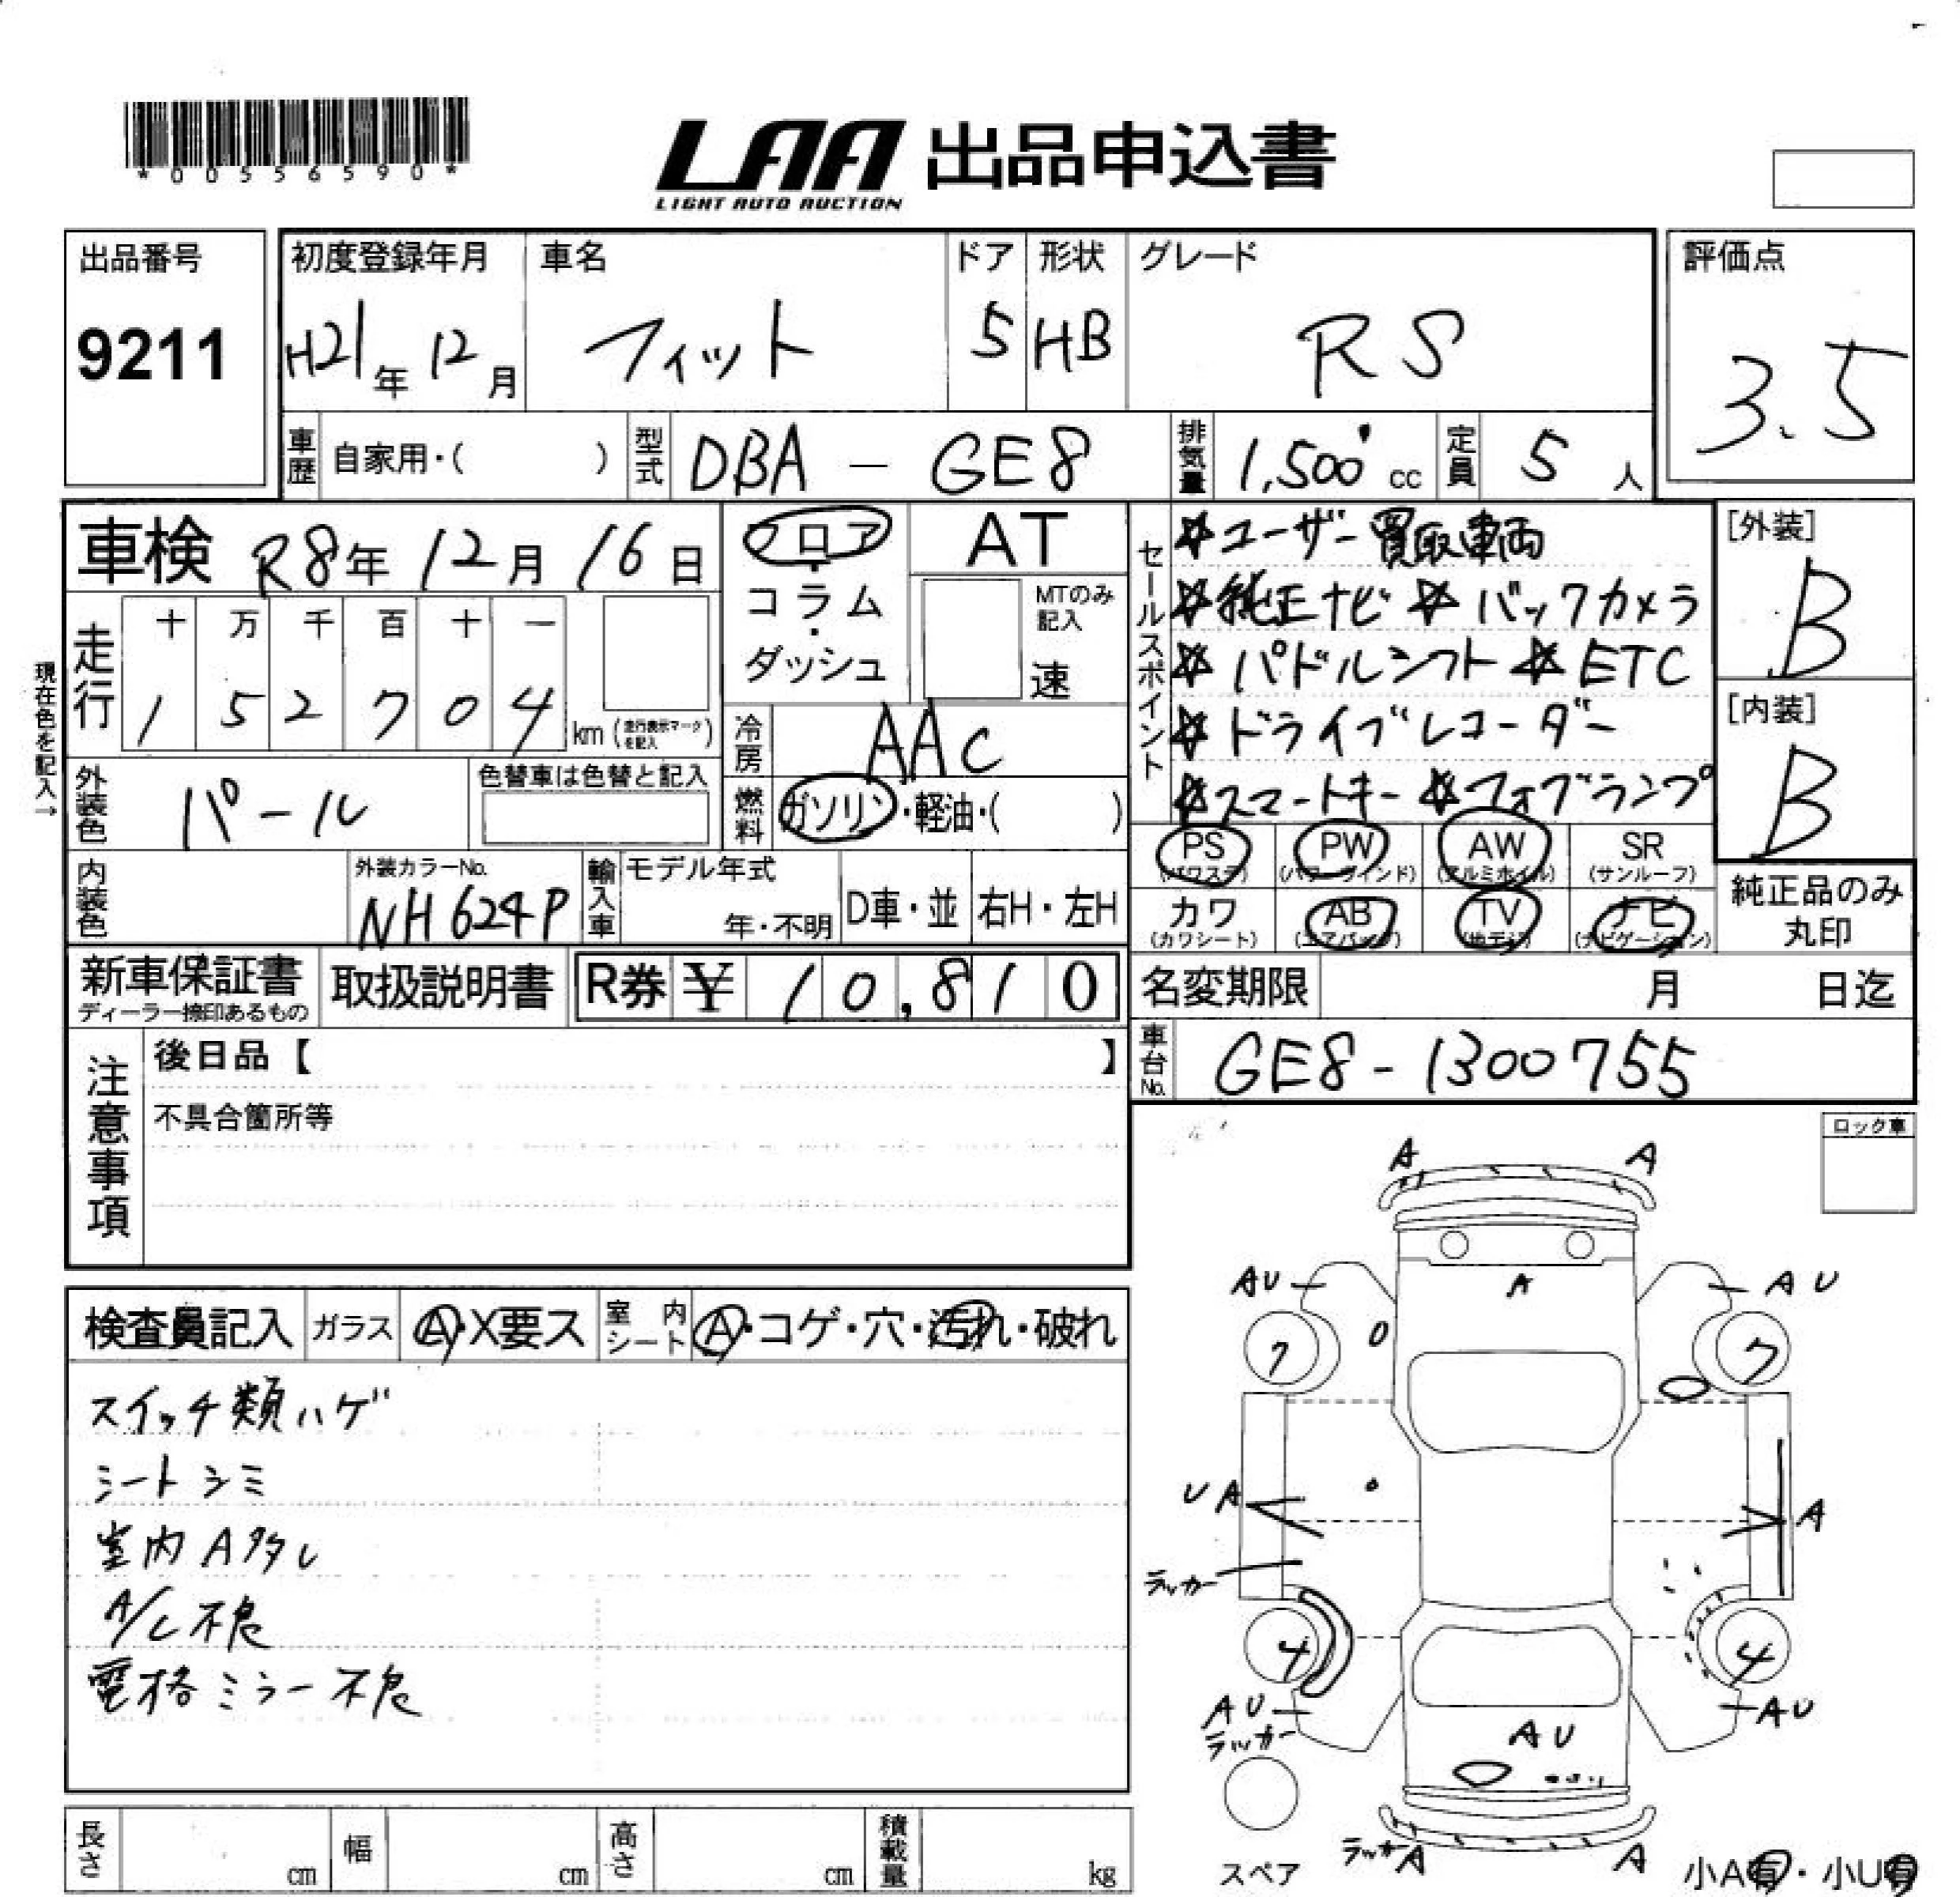 *00556590*
LAA 出品申込書
LIGHT AUTO AUCTION
出品番号
9211
初度登録年月
H21年 12月
車名
フィット
ドア
5
形状
HB
グレード
RS
評価点
3.5
車歴 自家用・( )
型式 DBA - GE8
排気量 1,500 cc
定員 5 人
車検 R8年 12月 16日
フロア・コラム・ダッシュ
AT
MTのみ記入
速
セールスポイント
☆ユーザー買取車両
☆純正ナビ ☆バックカメラ
☆パドルシフト ☆ETC
☆ドライブレコーダー
☆スマートキー ☆フォグランプ
[外装]
B
[内装]
B
現在色を記入→
走行
十 万 千 百 十 一
1 5 2 7 0 4 km (走行表示マークを記入)
冷房 AAC
燃料 ガソリン・軽油・( )
外装色 パール
色替車は色替と記入
内装色
外装カラーNo.
NH624P
輸入車
モデル年式
年・不明
D車・並
右H・左H
PS (パワステ)
PW (パワーウインド)
AW (アルミホイル)
SR (サンルーフ)
カワ (カワシート)
AB (エアバッグ)
TV (地デジ)
ナビ (ナビゲーション)
純正品のみ丸印
新車保証書
ディーラー捺印あるもの
取扱説明書
R券 ¥ 10,810
名変期限 月 日迄
車台No. GE8-1300755
注意事項
後日品【 】
不具合箇所等
ロック車
検査員記入
ガラス A・X要ス
室内シート A・コゲ・穴・汚れ・破れ
スイッチ類ハゲ
シートシミ
室内A多し
A/C不良
電格ミラー不良
A A
AU A AU
7 7
UA A
ラッカー
4 4
AU AU
ラッカー AU
ラッカーA A
スペア
小A有・小U有
長さ cm
幅 cm
高さ cm
積載量 kg